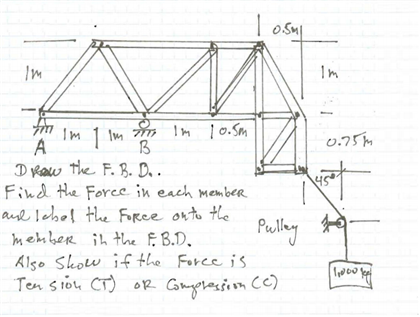 0.5m
1m
1m
1m
1m
1m
0.5m
A
B
0.75m
Draw the F.B.D..
45°
Find the Force in each member
and label the Force onto the
Pulley
member in the F.B.D.
Also Show if the Force is
Tension (T) OR Compression (C)
1,000 kg